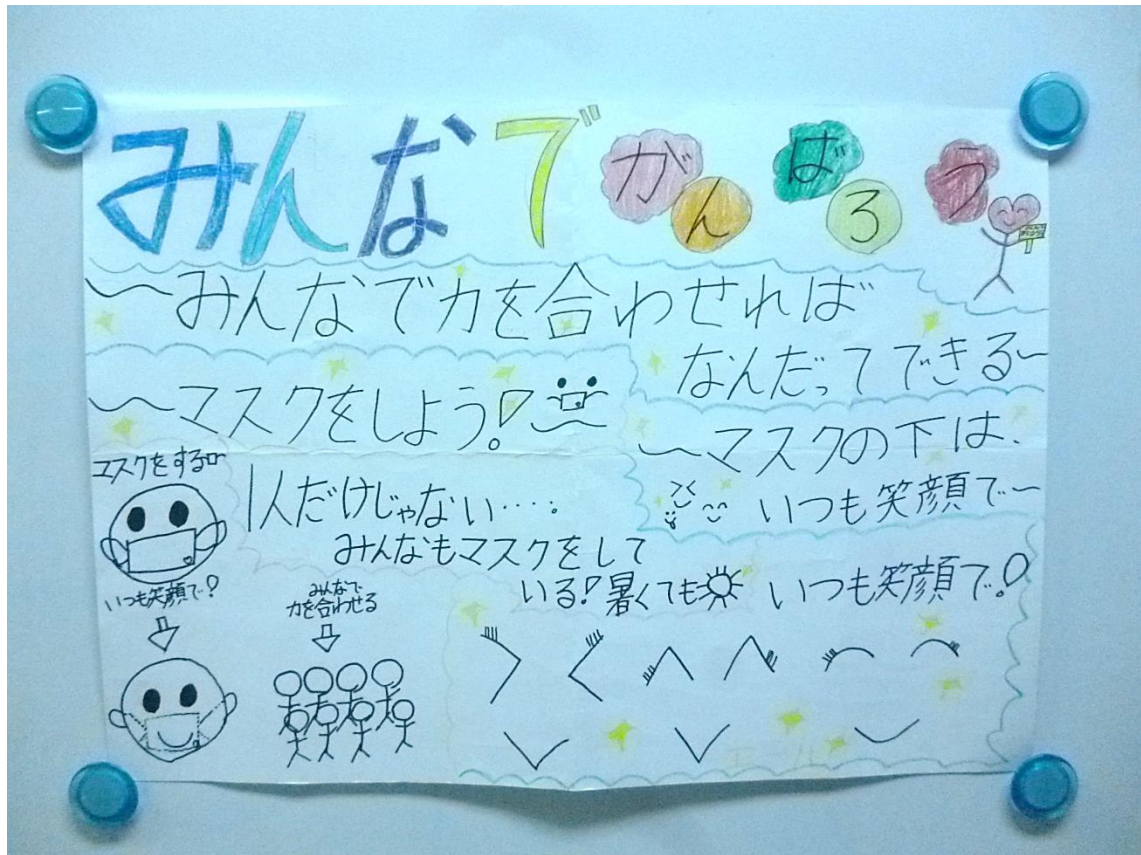 みんなでがんばろう
〜みんなで力を合わせれば
なんだってできる〜
〜マスクをしよう!
〜マスクの下は、
いつも笑顔で〜
マスクをする
1人だけじゃない・・・・。
みんなもマスクをして
いる!暑くても いつも笑顔で!
いつも笑顔で!
みんなで
力を合わせる